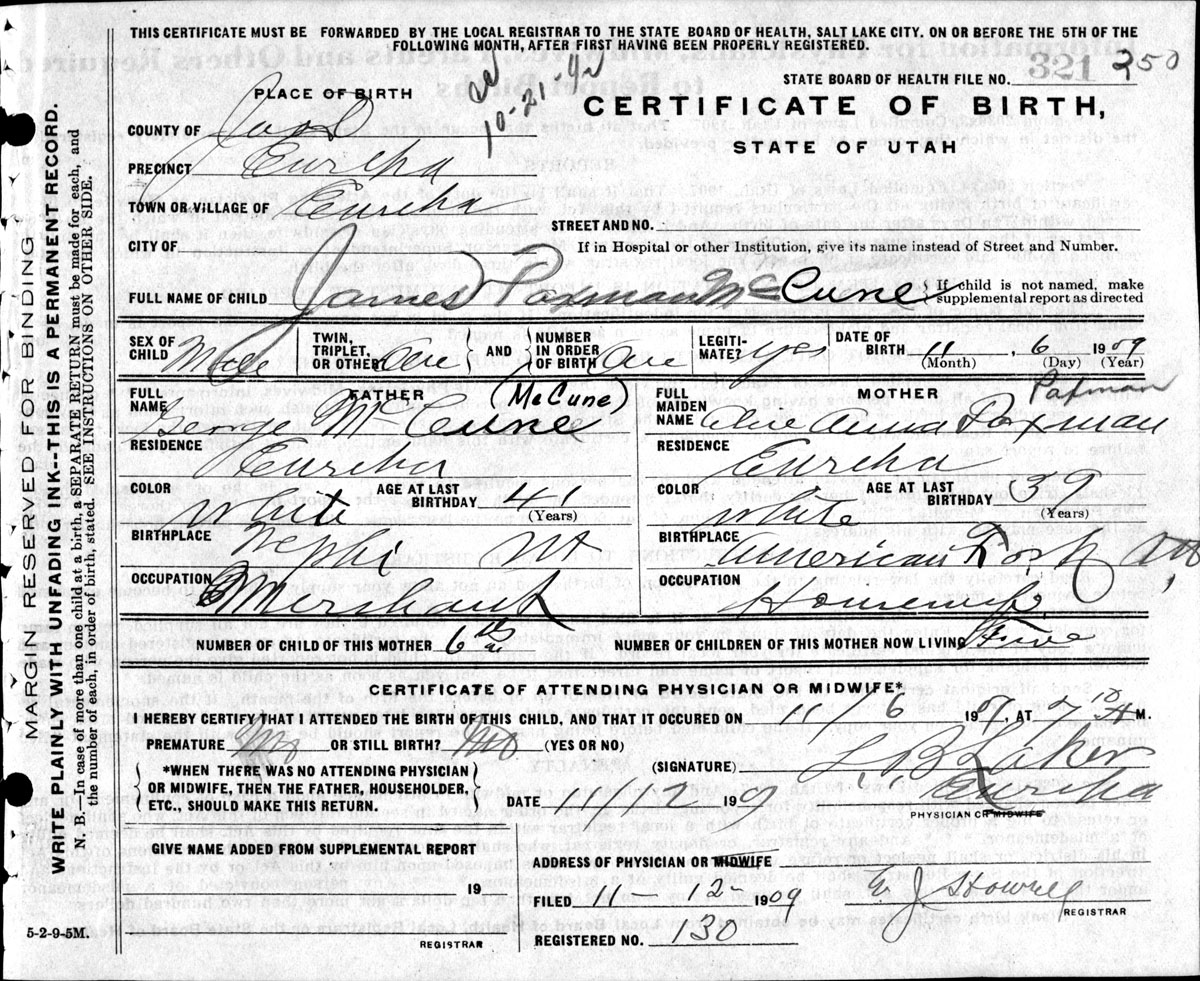 THIS CERTIFICATE MUST BE FORWARDED BY THE LOCAL REGISTRAR TO THE STATE BOARD OF HEALTH, SALT LAKE CITY. ON OR BEFORE THE 5TH OF THE
FOLLOWING MONTH, AFTER FIRST HAVING BEEN PROPERLY REGISTERED.
STATE BOARD OF HEALTH FILE NO. 321 250
10-21-42
PLACE OF BIRTH
CERTIFICATE OF BIRTH,
STATE OF UTAH
COUNTY OF Juab
PRECINCT Eureka
TOWN OR VILLAGE OF Eureka
STREET AND NO.
CITY OF
If in Hospital or other Institution, give its name instead of Street and Number.
FULL NAME OF CHILD James Paxman McCune { If child is not named, make supplemental report as directed
SEX OF CHILD Male
TWIN, TRIPLET, OR OTHER One AND NUMBER IN ORDER OF BIRTH One
LEGITIMATE? Yes
DATE OF BIRTH 11, 6 1909
(Month) (Day) (Year)
FATHER
FULL NAME George McCune (McCune)
RESIDENCE Eureka
COLOR White
AGE AT LAST BIRTHDAY 41
(Years)
BIRTHPLACE Nephi Ut
OCCUPATION Merchant
MOTHER
FULL MAIDEN NAME Anna Paxman Paxman
RESIDENCE Eureka
COLOR White
AGE AT LAST BIRTHDAY 39
(Years)
BIRTHPLACE American Fork
OCCUPATION Housewife
NUMBER OF CHILD OF THIS MOTHER 6th
NUMBER OF CHILDREN OF THIS MOTHER NOW LIVING Five
CERTIFICATE OF ATTENDING PHYSICIAN OR MIDWIFE*
I HEREBY CERTIFY THAT I ATTENDED THE BIRTH OF THIS CHILD, AND THAT IT OCCURED ON 11/6 1909, AT M.
PREMATURE No OR STILL BIRTH? No (YES OR NO)
*WHEN THERE WAS NO ATTENDING PHYSICIAN
OR MIDWIFE, THEN THE FATHER, HOUSEHOLDER,
ETC., SHOULD MAKE THIS RETURN.
(SIGNATURE)
DATE 11/12 1909 Eureka
PHYSICIAN OR MIDWIFE
GIVE NAME ADDED FROM SUPPLEMENTAL REPORT
19
REGISTRAR
ADDRESS OF PHYSICIAN OR MIDWIFE
FILED 11-12-1909 E. J. Howell
REGISTRAR
REGISTERED NO. 130
5-2-9-5M.
MARGIN RESERVED FOR BINDING
WRITE PLAINLY WITH UNFADING INK--THIS IS A PERMANENT RECORD.
N. B.—In case of more than one child at a birth, a SEPARATE RETURN must be made for each, and
the number of each, in order of birth, stated. SEE INSTRUCTIONS ON OTHER SIDE.